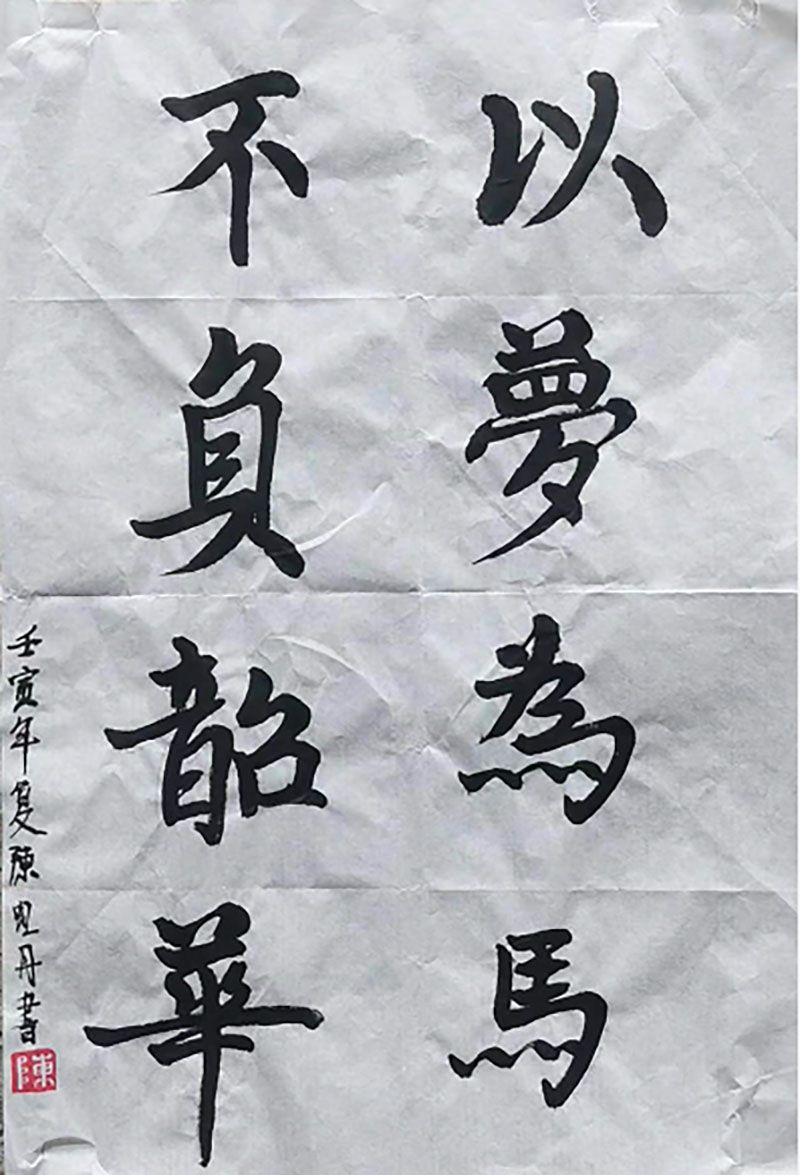 以夢為馬
不負韶華
壬寅年夏陳思丹書
陳